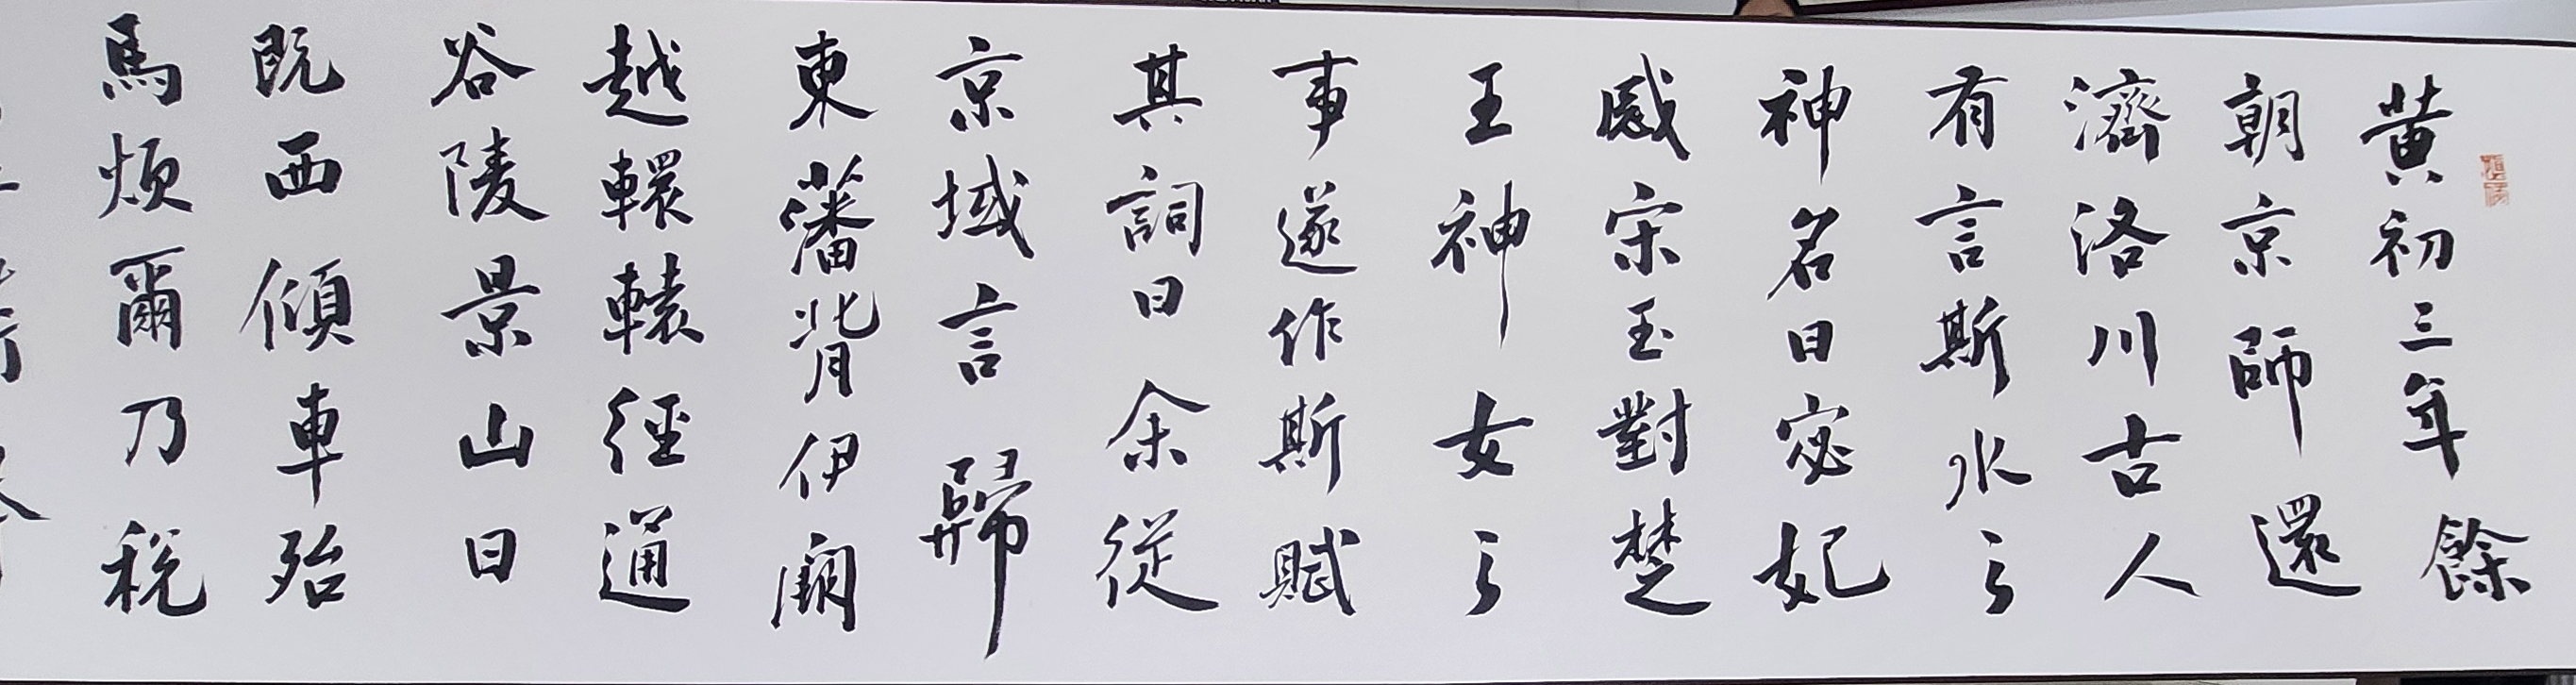 黃初三年餘
朝京師還
濟洛川古人
有言斯水之
神名曰宓妃
感宋玉對楚
王神女之
事遂作斯賦
其詞曰余從
京域言歸
東藩背伊闕
越轘轅經通
谷陵景山日
既西傾車殆
馬煩爾乃稅